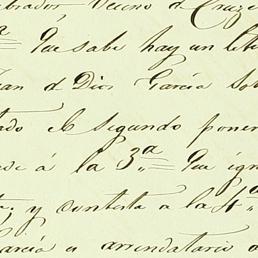 brador Vecino d Cruze
a Que sabe hay un lit
uan d Dios Garcia So
ado el segundo poner
de á la 3.ª Que ign
ta, y contesta a la 4.ª
Garcia a arrendatario a